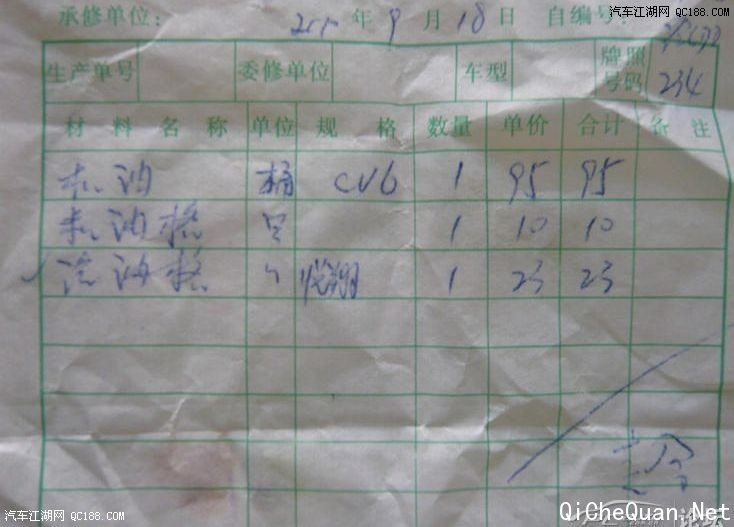 汽车江湖网 QC188.COM
汽车江湖网 QC188.COM
承修单位： 年 9 月 18 日 自编号：
生产单号 委修单位 车型 牌照号码 234
材料名称 单位 规格 数量 单价 合计 备注
机油 桶 CV6 1 95 95
机油格 只 1 10 10
汽油格 〃 悦翔 1 23 23
汽车江湖网 QC188.COM
QiCheQuan.Net
汽车江湖网 QC188.COM
论坛